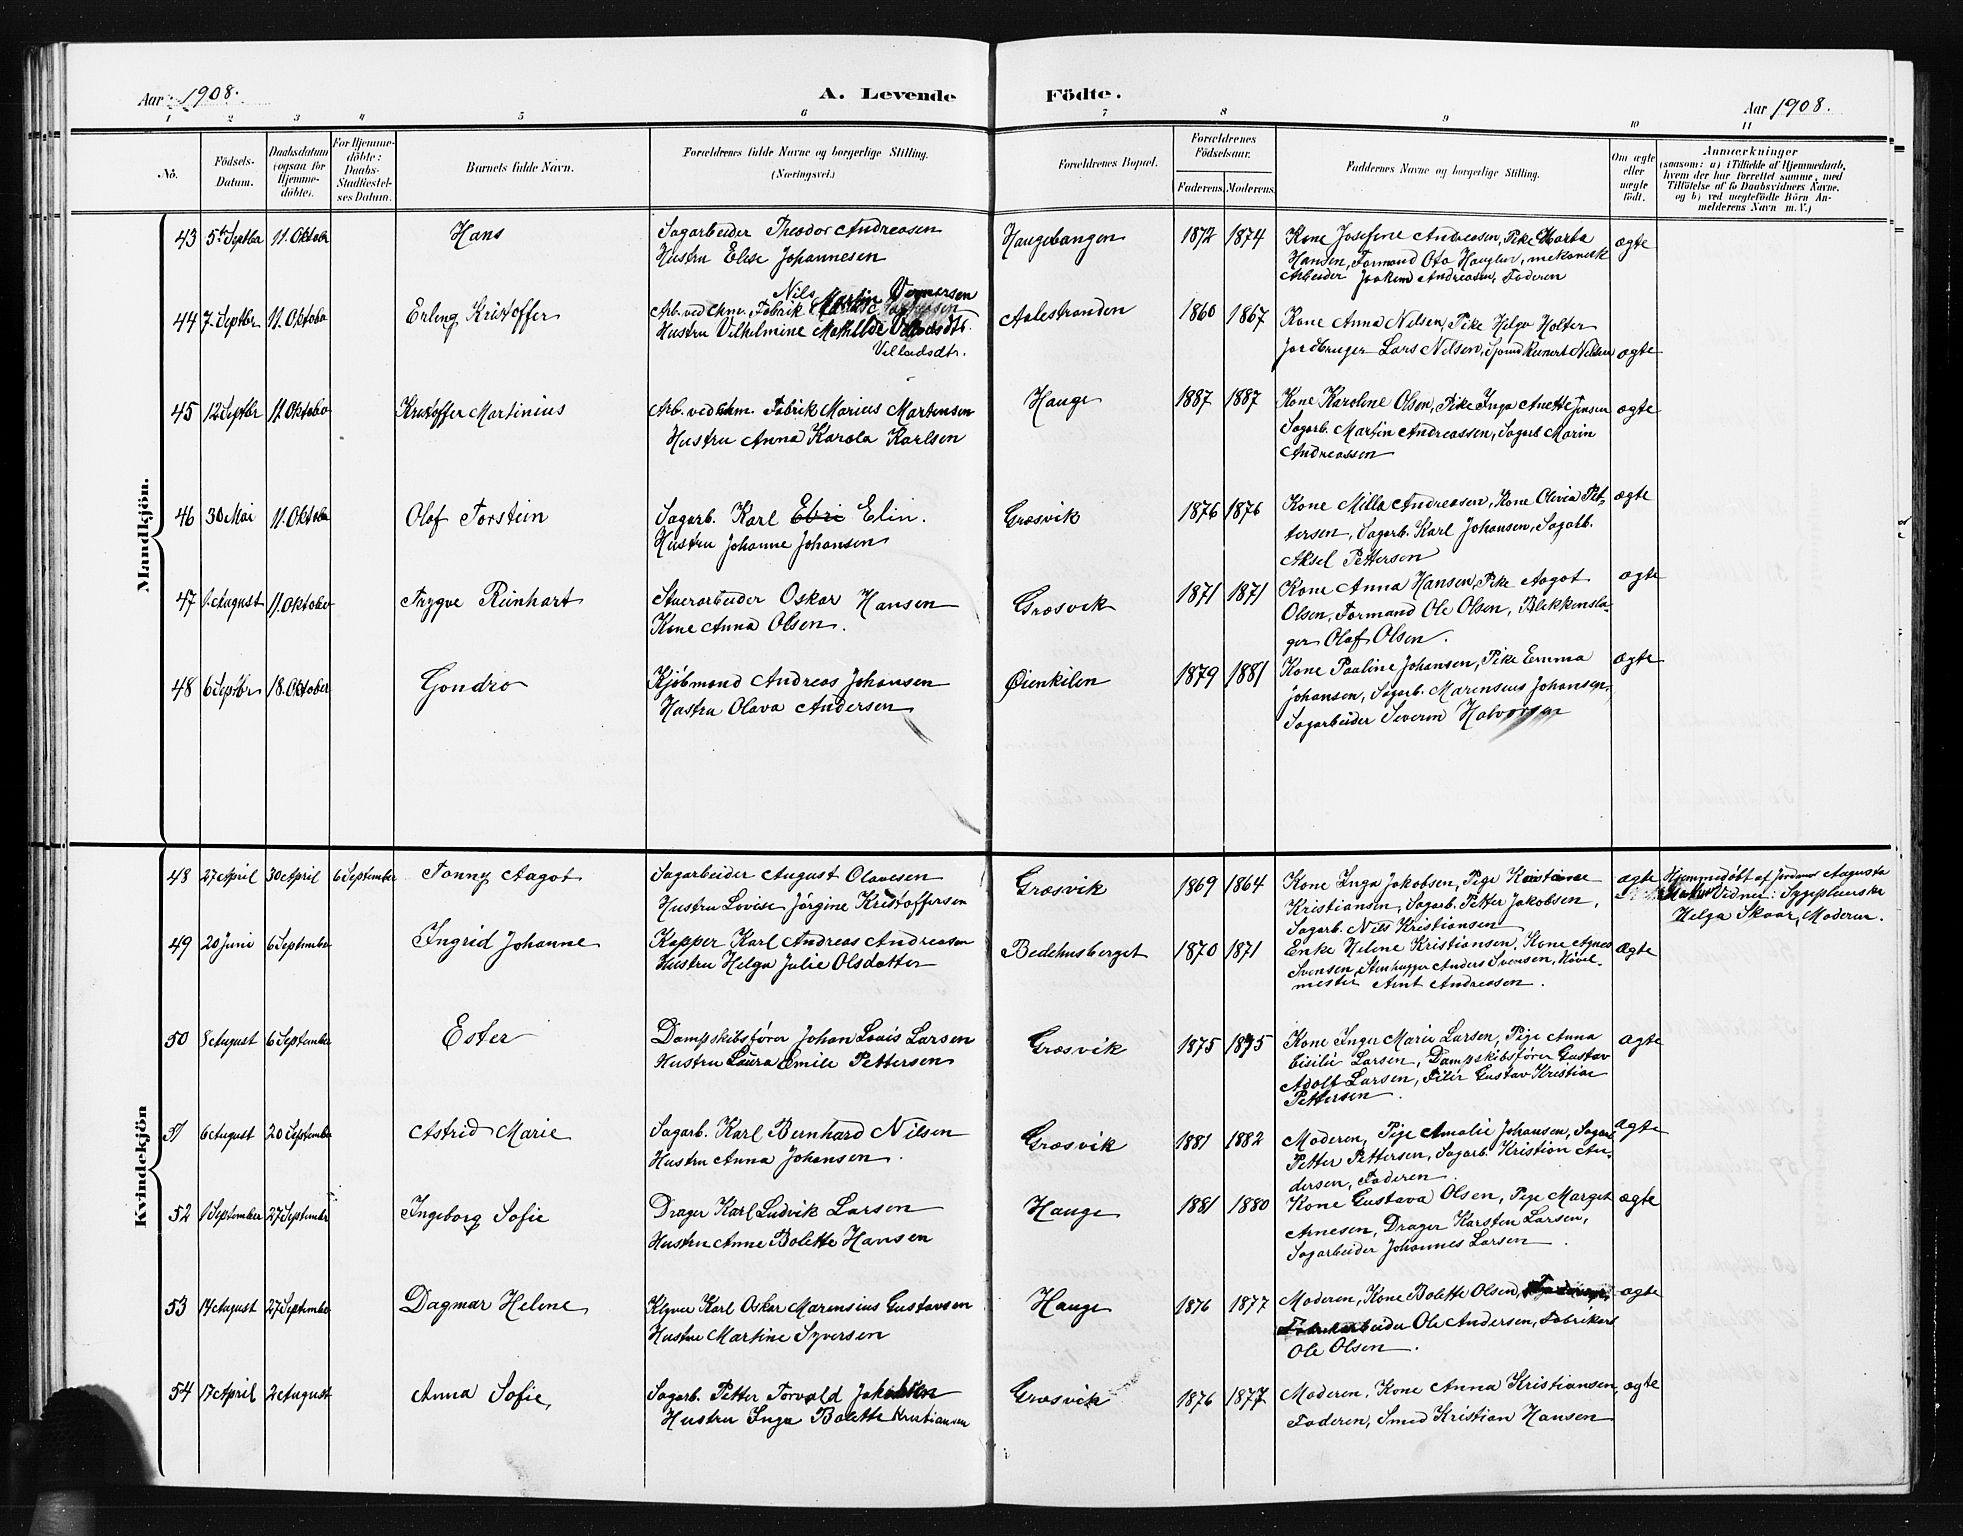 Aar 1908.
A. Levende Födte.
Aar 1908.
1 2 3 4 5 6 7 8 9 10 11
No.
Födsels-Datum.
Daabsdatum (ogsaa for Hjemmedöbte).
For Hjemmedöbte: Daabs-Stadfæstelses Datum.
Barnets fulde Navn.
Forældrenes fulde Navne og borgerlige Stilling. (Næringsvei.)
Forældrenes Bopæl.
Forældrenes Födselsaar.
Faderens. Moderens.
Faddernes Navne og borgerlige Stilling.
Om ægte eller uægte födt.
Anmærkninger
(saasom: a) i Tilfælde af Hjemmedaab, hvem der har forrettet samme, med Tilföielse af to Daabsvidners Navne, og b) ved uægtefödte Börn Anmelderens Navn m. V.)
Mandkjön.
43 5te Septbr 11. Oktobr Hans Sagarbeider Theodor Andreasen Haugebangen 1872 1874 Kone Josefine Andreasen, Pike Marta ægte
Hustru Elise Johannesen Hansen, Formand Oto Haugen, mekanisk
Arbeider Joakim Andreasen, Faderen
Nils Martin
44 7. Septbr 11. Oktobr Erling Kristoffer Arb. ved chm. Fabrik Aalestranden 1860 1867 Kone Anna Nilsen, Pike Helga Holter
Hustru Vilhelmine Mathilde Jordbruger Lars Nilsen, Nilsen ægte
Villadsdtr.
45 12 Septbr 11. Oktober Kristoffer Martinius Arb. ved chm. Fabrik Marius Martensen Hauge 1887 1887 Kone Karoline Olsen, Pike Inga Anette Jensen ægte
Hustru Anna Karola Karlsen Sagarb. Martin Andreassen, Sagarb Marin
Andreassen
46 30 Mai 11. Oktober Olaf Torstein Sagarb. Karl Elin. Græsvik 1876 1876 Kone Milla Andreasen, Kone Olivia Pet- ægte
Hustru Johanne Johansen tersen, Sagarb. Karl Johansen, Sagarb.
Aksel Pettersen
47 1. August 11. Oktober Trygve Reinhart Stuerarbeider Oskar Hansen Græsvik 1871 1871 Kone Anna Hansen, Pike Aagot ægte
Kone Anna Olsen. Olsen, Formand Ole Olsen, Blekkensla-
ger Olaf Olsen.
48 6 Septbr 18. Oktober Gondro Kjøbmand Andreas Johansen Øienkilen 1879 1881 Kone Pauline Johansen, Pike Emma ægte
Hustru Olava Andersen Johansen, Sagarb. Marensius Johansen,
Sagarbeider Severin Halvorsen
Kvindekjön
48 27 April 30 April 6 September Fanny Aagot Sagarbeider August Olavesen Græsvik 1869 1864 Kone Inga Jakobsen, Pige Kristiane ægte Hjemmedøbt af Jordmor Augusta
Hustru Lovise Jörgine Kristoffersen Kristiansen, Sagarb. Petter Jakobsen, Vidner: Sygepleierske
Sagarb. Nils Kristiansen Helga Skaar, Moderen.
49 20 Juni 6 September Ingrid Johanne Kapper Karl Andreas Andreasen Bedehusberget 1870 1871 Enke Helene Kristiansen, Kone Agnes ægte
Hustru Helga Julie Olsdatter Svensen, Stenhugger Anders Svensen, Hövel-
mester Arnt Andreasen.
50 8 August 6 September Ester Dampskibsfører Johan Louis Larsen Græsvik 1875 1875 Kone Inger Marie Larsen, Pige Anna ægte
Hustru Laura Emile Pettersen Cisilie Larsen, Dampskibsfører Gustav
Adolf Larsen, Filer Gustav Kristian
Pettersen.
51 6 August 20 September Astrid Marie Sagarb. Karl Bernhard Nilsen Græsvik 1881 1882 Moderen, Pige Amalie Johansen, Sagarb ægte
Hustru Anna Johansen. Petter Pettersen, Sagarb. Kristian An-
dersen, Faderen.
52 1 September 27 September Ingeborg Sofie Drager Karl Ludvik Larsen Hauge 1881 1880 Kone Gustava Olsen, Pige Marget ægte
Hustru Anne Bolette Hansen Arnesen, Drager Karsten Larsen,
Sagarbeider Johannes Larsen.
53 14 August 27 September Dagmar Helene Klyver Karl Oskar Marensius Gustavsen Hauge 1876 1877 Moderen, Kone Bolette Olsen, ægte
Hustru Martine Syversen Fabrikarbeider Ole Andersen, Fabrikarb
Ole Olsen.
54 17 April 2 August Anna Sofie, Sagarb. Petter Torvald Jakobsen Græsvik 1876 1877 Moderen, Kone Anna Kristiansen, ægte
Hustru Inga Bolette Kristiansen Faderen, Smed Kristian Hansen